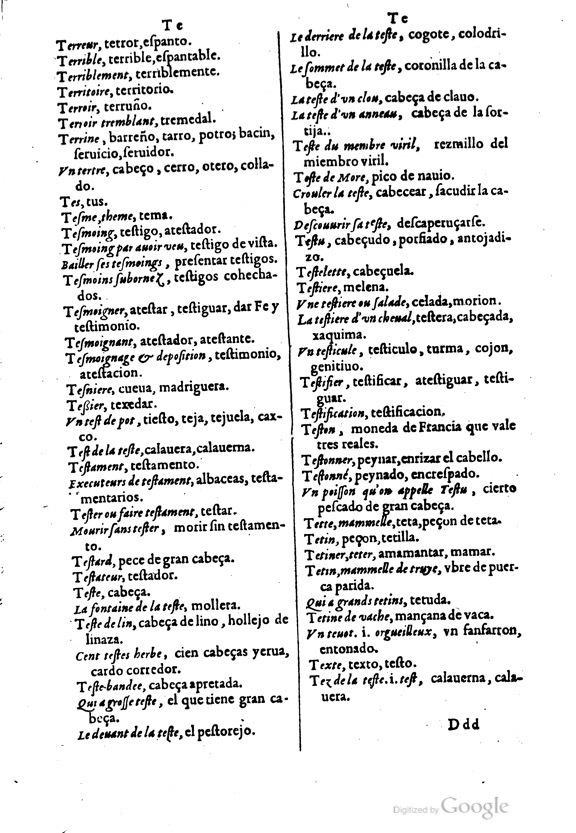 Te
Terreur, terror, eſpanto.
Terrible, terrible, eſpantable.
Terriblement, terriblemente.
Territoire, territorio.
Terroir, terruño.
Terroir tremblant, tremedal.
Terrine, barreño, tarro, potro; bacin,
ſeruicio, ſeruidor.
Vn tertre, cabeço, cerro, otero, colla-
do.
Tes, tus.
Teſme, theme, tema.
Teſmoing, teſtigo, ateſtador.
Teſmoing par auoir veu, teſtigo de viſta.
Bailler ſes teſmoings, preſentar teſtigos.
Teſmoins ſubornez, teſtigos cohecha-
dos.
Teſmoigner, ateſtar, teſtiguar, dar Fe y
teſtimonio.
Teſmoignant, ateſtador, ateſtante.
Teſmoignage & depoſition, teſtimonio,
ateſtacion.
Teſniere, cueua, madriguera.
Teßier, texedor.
Vn teſt de pot, tieſto, teja, tejuela, cax-
co.
Teſt de la teſte, calauera, calauerna.
Teſtament, teſtamento.
Executeurs de teſtament, albaceas, teſta-
mentarios.
Teſter ou faire teſtament, teſtar.
Mourir ſans teſter, morir ſin teſtamen-
to.
Teſtard, pece de gran cabeça.
Teſtateur, teſtador.
Teſte, cabeça.
La fontaine de la teſte, mollera.
Teſte de lin, cabeça de lino, hollejo de
linaza.
Cent teſtes herbe, cien cabeças yerua,
cardo corredor.
Teſte bandee, cabeça apretada.
Qui a groſſe teſte, el que tiene gran ca-
beça.
Le deuant de la teſte, el peſtorejo.
Te
Le derriere de la teſte, cogote, colodri-
llo.
Le ſommet de la teſte, coronilla de la ca-
beça.
La teſte d'vn clou, cabeça de clauo.
La teſte d'vn anneau, cabeça de la ſor-
tija.
Teſte du membre viril, rezmillo del
miembro viril.
Teſte de More, pico de nauio.
Crouler la teſte, cabecear, ſacudir la ca-
beça.
Deſcouurir ſa teſte, deſcaperuçarſe.
Teſtu, cabeçudo, porfiado, antojadi-
zo.
Teſtelette, cabeçuela.
Teſtiere, melena.
Vne teſtiere ou ſalade, celada, morion.
La teſtiere d'vn cheual, teſtera, cabeçada,
xaquima.
Vn teſticule, teſticulo, turma, cojon,
genitiuo.
Teſtifier, teſtificar, ateſtiguar, teſti-
guar.
Teſtification, teſtificacion.
Teſton, moneda de Francia que vale
tres reales.
Teſtonner, peynar, enrizar el cabello.
Teſtonné, peynado, encreſpado.
Vn poiſſon qu'on appelle Teſtu, cierto
peſcado de gran cabeça.
Tette, mammelle, teta, peçon de teta.
Tetin, peçon, tetilla.
Tetiner, teter, amamantar, mamar.
Tetin, mammelle de truye, vbre de puer-
ca parida.
Qui a grands tetins, tetuda.
Tetine de vache, mançana de vaca.
Vn teuot. i. orgueilleux, vn fanfarron,
entonado.
Texte, texto, teſto.
Tez de la teſte. i. teſt, calauerna, cala-
uera.
Ddd
Digitized by Google